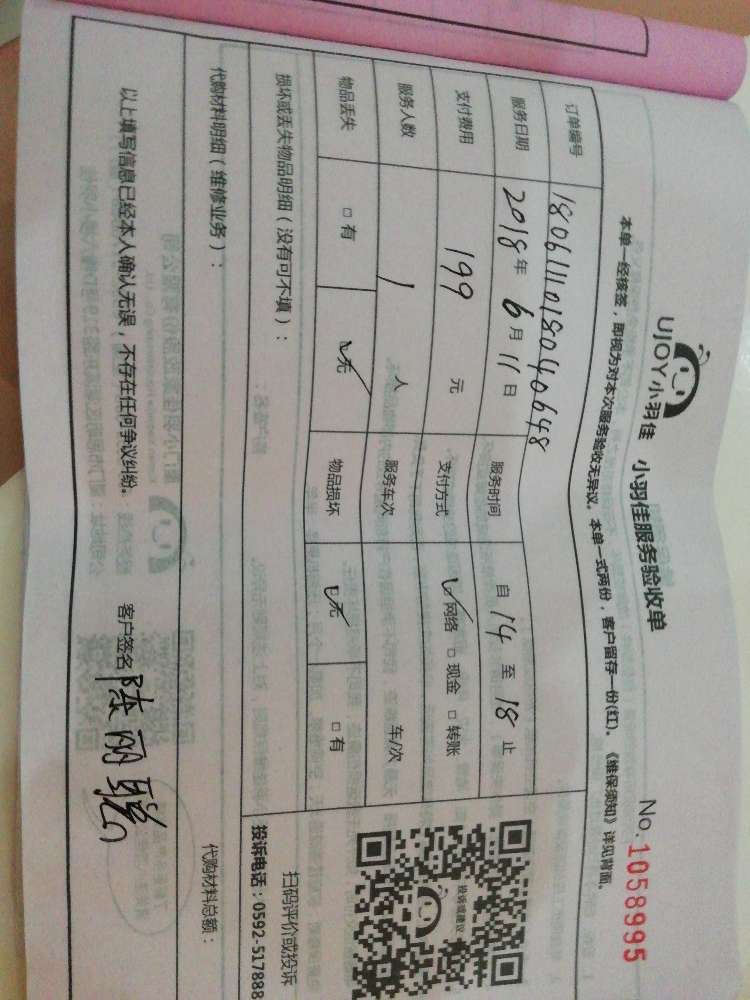 UJOY小羽佳 小羽佳服务验收单
No.1058995
本单一经核签，即视为对本次服务验收无异议。本单一式两份，客户留存一份(红)。《维保须知》详见背面。
订单编号 180611101804064​8
服务日期 2018年6月11日 服务时间 自14至18止
支付费用 199元 支付方式 网络 □现金 □转账
服务人数 1人 服务车次 车/次
物品丢失 □有 无 物品损坏 无 □有
损坏或丢失物品明细（没有可不填）：
代购材料明细（维修业务）：
代购材料总额：
投诉或建议
扫码评价或投诉
投诉电话：0592-517888
以上填写信息已经本人确认无误，不存在任何争议纠纷。 客户签名 陈丽